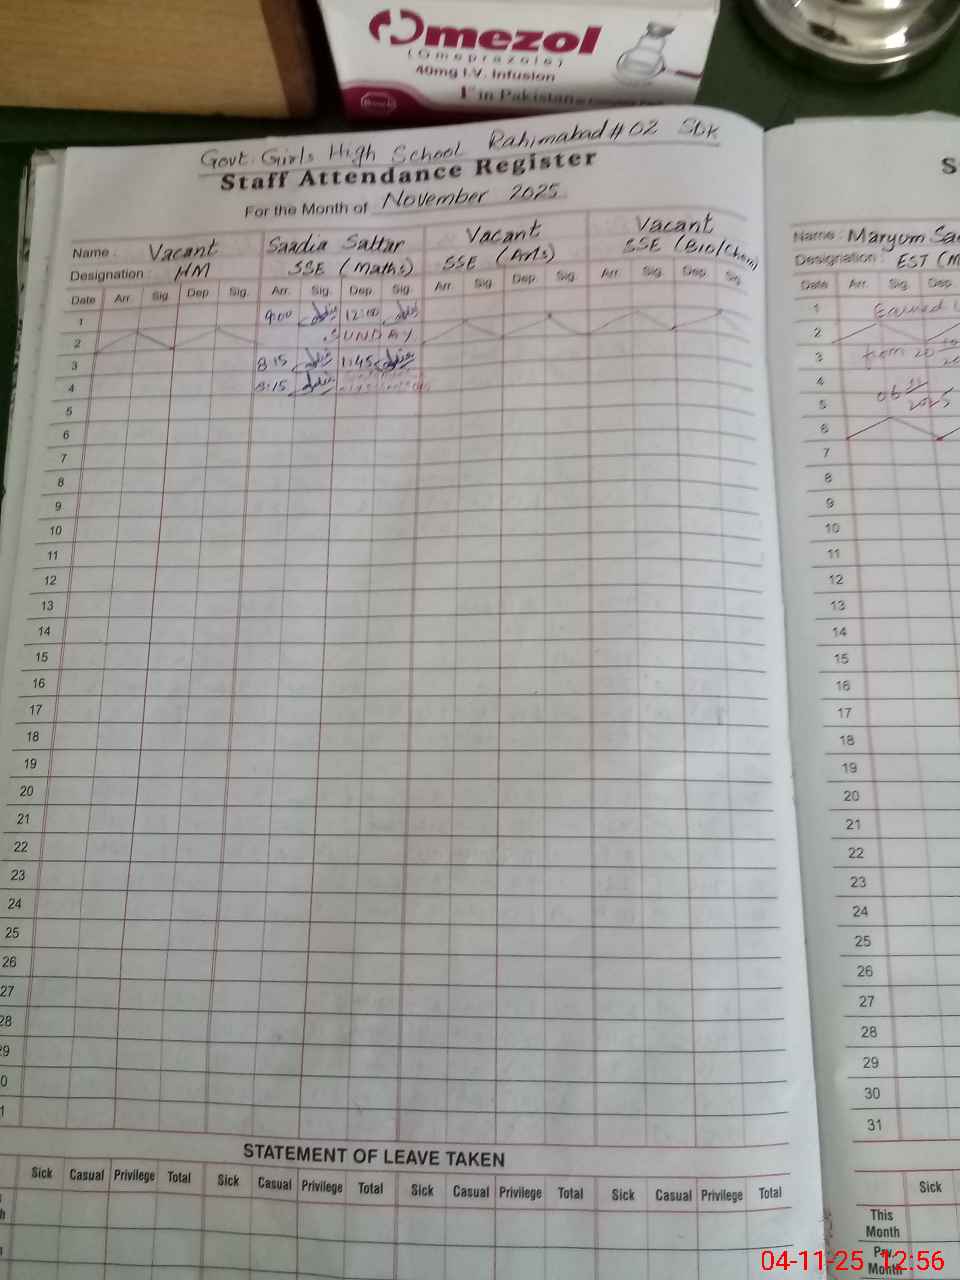 Omezol
(Omeprazole)
40mg I.V. Infusion
1st in Pakistan
Govt. Girls High School Rahimabad # 02 SDK
Staff Attendance Register
For the Month of November 2025
Name: Vacant Saadia Sattar Vacant Vacant
Designation: HM SSE (Maths) SSE (Arts) SSE (Bio/Chem)
Date Arr. Sig. Dep. Sig. Arr. Sig. Dep. Sig. Arr. Sig. Dep. Sig. Arr. Sig. Dep. Sig.
1 9:00 12:00
2 SUNDAY
3 8:15 1:45
4 8:15
5
6
7
8
9
10
11
12
13
14
15
16
17
18
19
20
21
22
23
24
25
26
27
28
29
0
1
STATEMENT OF LEAVE TAKEN
Sick Casual Privilege Total Sick Casual Privilege Total Sick Casual Privilege Total Sick Casual Privilege Total
S
Name: Maryum Sa
Designation: EST (M
Date Arr. Sig. Dep.
1 Earned
2
3 from 20
4 06 11
5 2025
6
7
8
9
10
11
12
13
14
15
16
17
18
19
20
21
22
23
24
25
26
27
28
29
30
31
Sick
This
Month
Pav.
Month
04-11-25 12:56